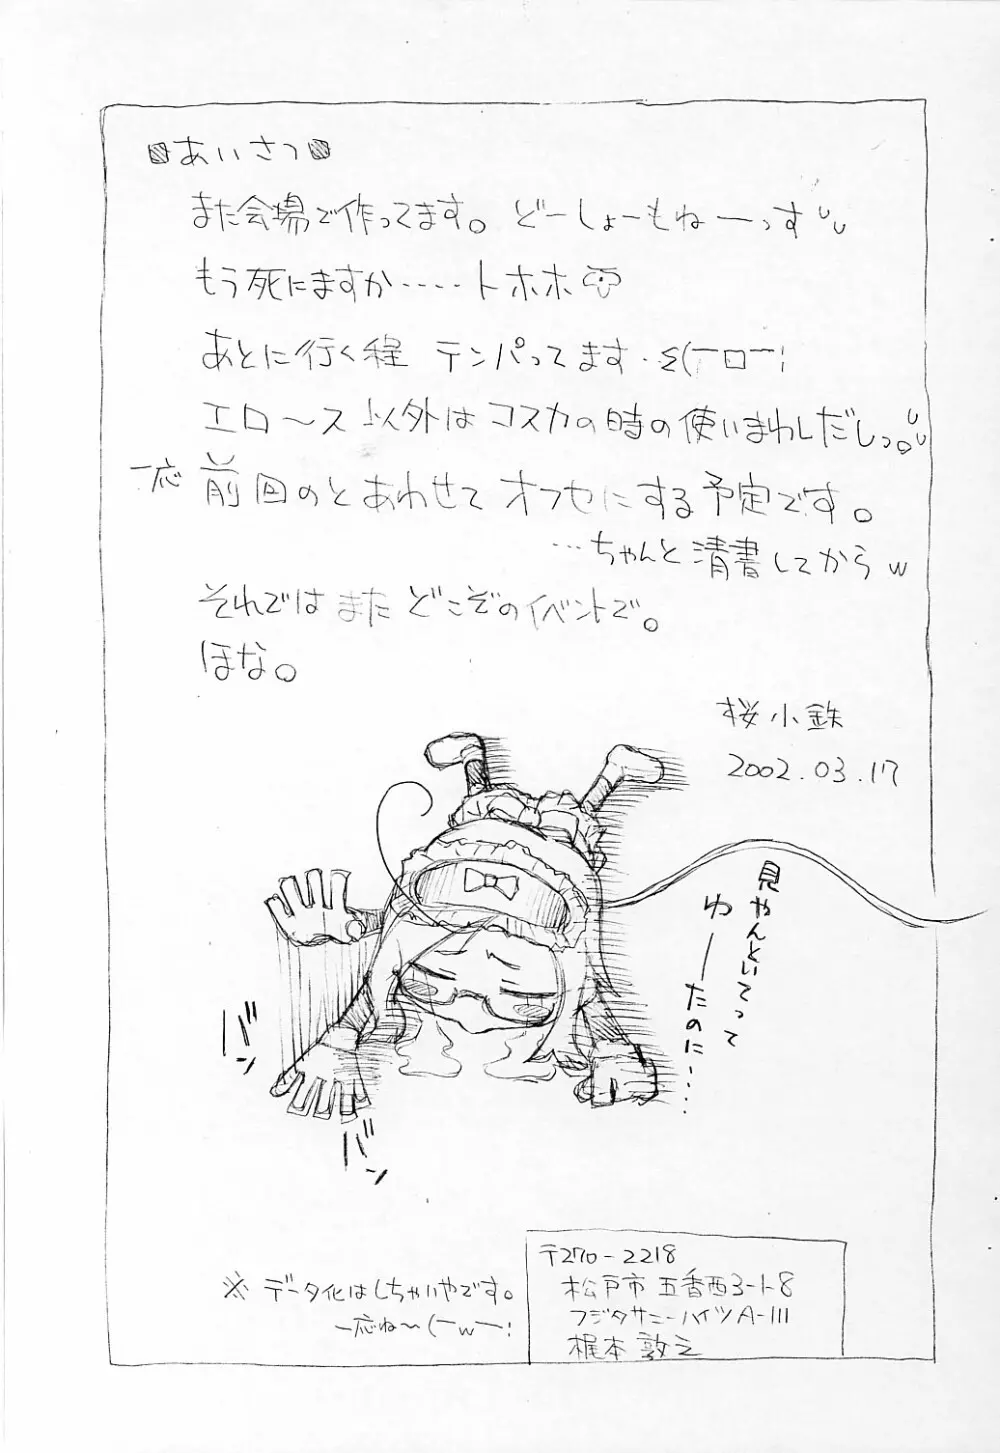 あいさつ
また会場で作ってます。どーしょーもねーっす
もう死にますか‥‥‥トホホ
あとに行く程 テンパってます・Σ(￣ロ￣;
エロース以外はコスカの時の使いまわしだしっ。
一応 前回のとあわせてオフセにする予定です。
…ちゃんと清書してからw
それではまた どこぞのイベントで。
ほな。
桜小鉄
2002.03.17
見やんといてって
ゆーたのに‥‥
バン
バン
※ データ化はしちゃいやです。
一応ね〜(￣w￣;
〒270-2218
松戸市五香西3-1-8
フジタサニーハイツA-111
梶本敦之